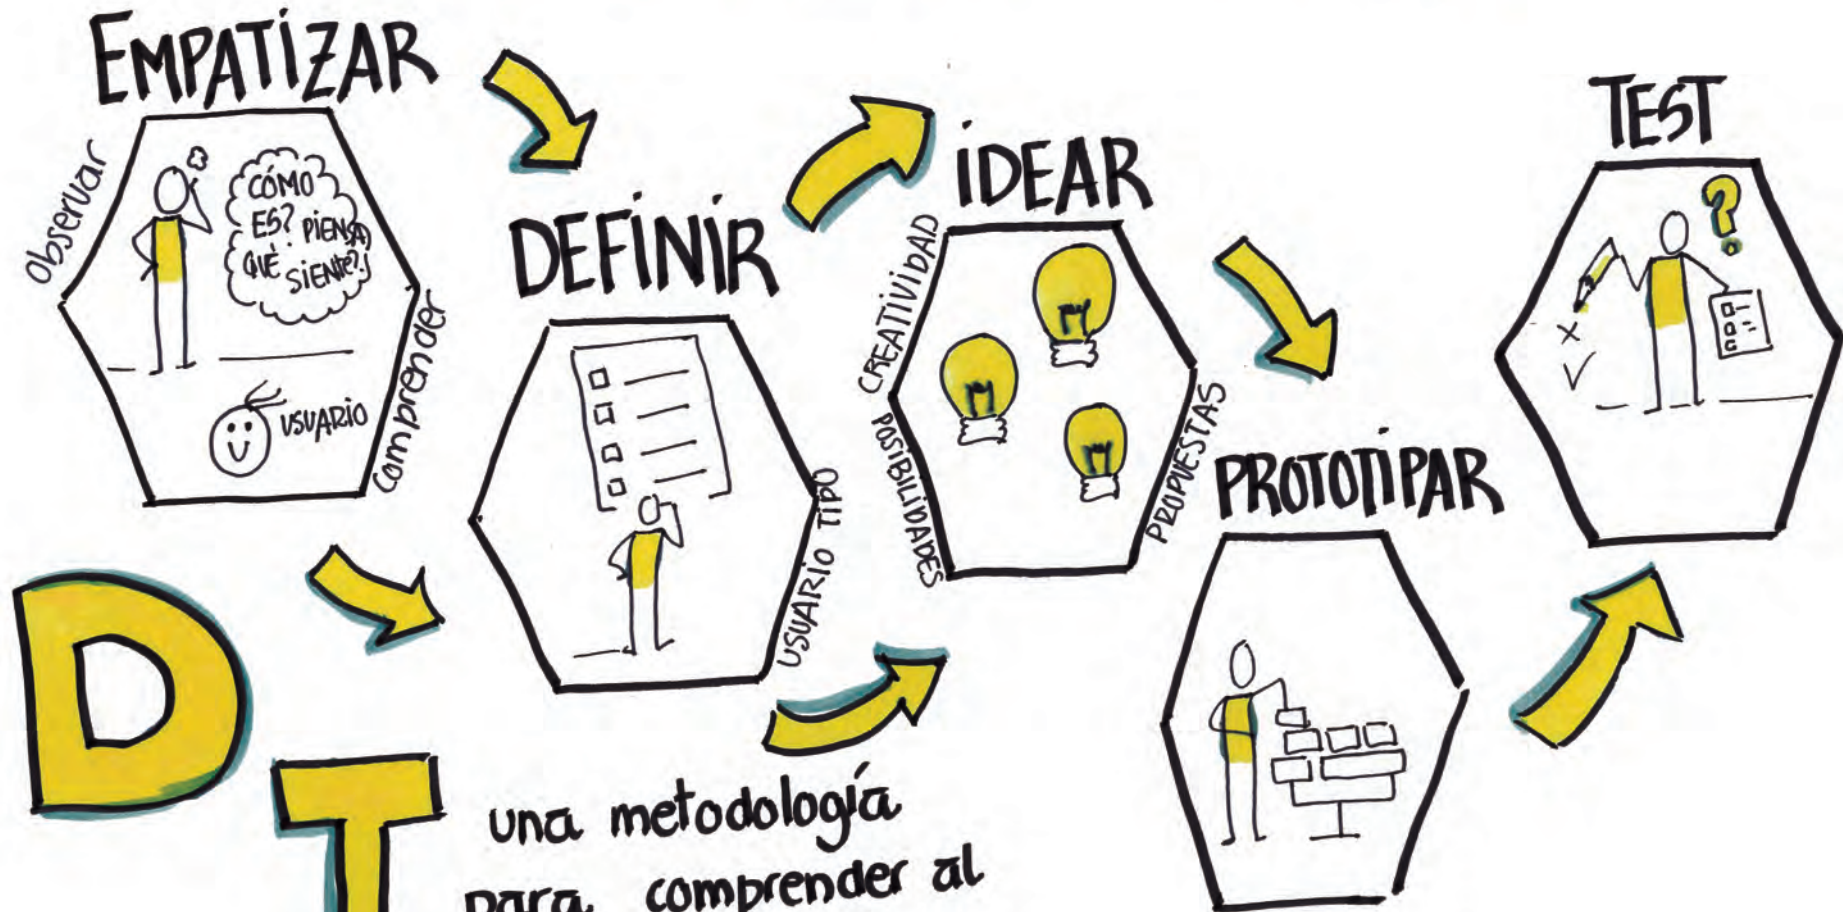 EMPATIZAR
Observar
CÓMO
ES? PIENSA
QUÉ SIENTE?
USUARIO
Comprender
DEFINIR
USUARIO TIPO
IDEAR
CREATIVIDAD
POSIBILIDADES
PROPUESTAS
PROTOTIPAR
TEST
?
DT
una metodología
para comprender al